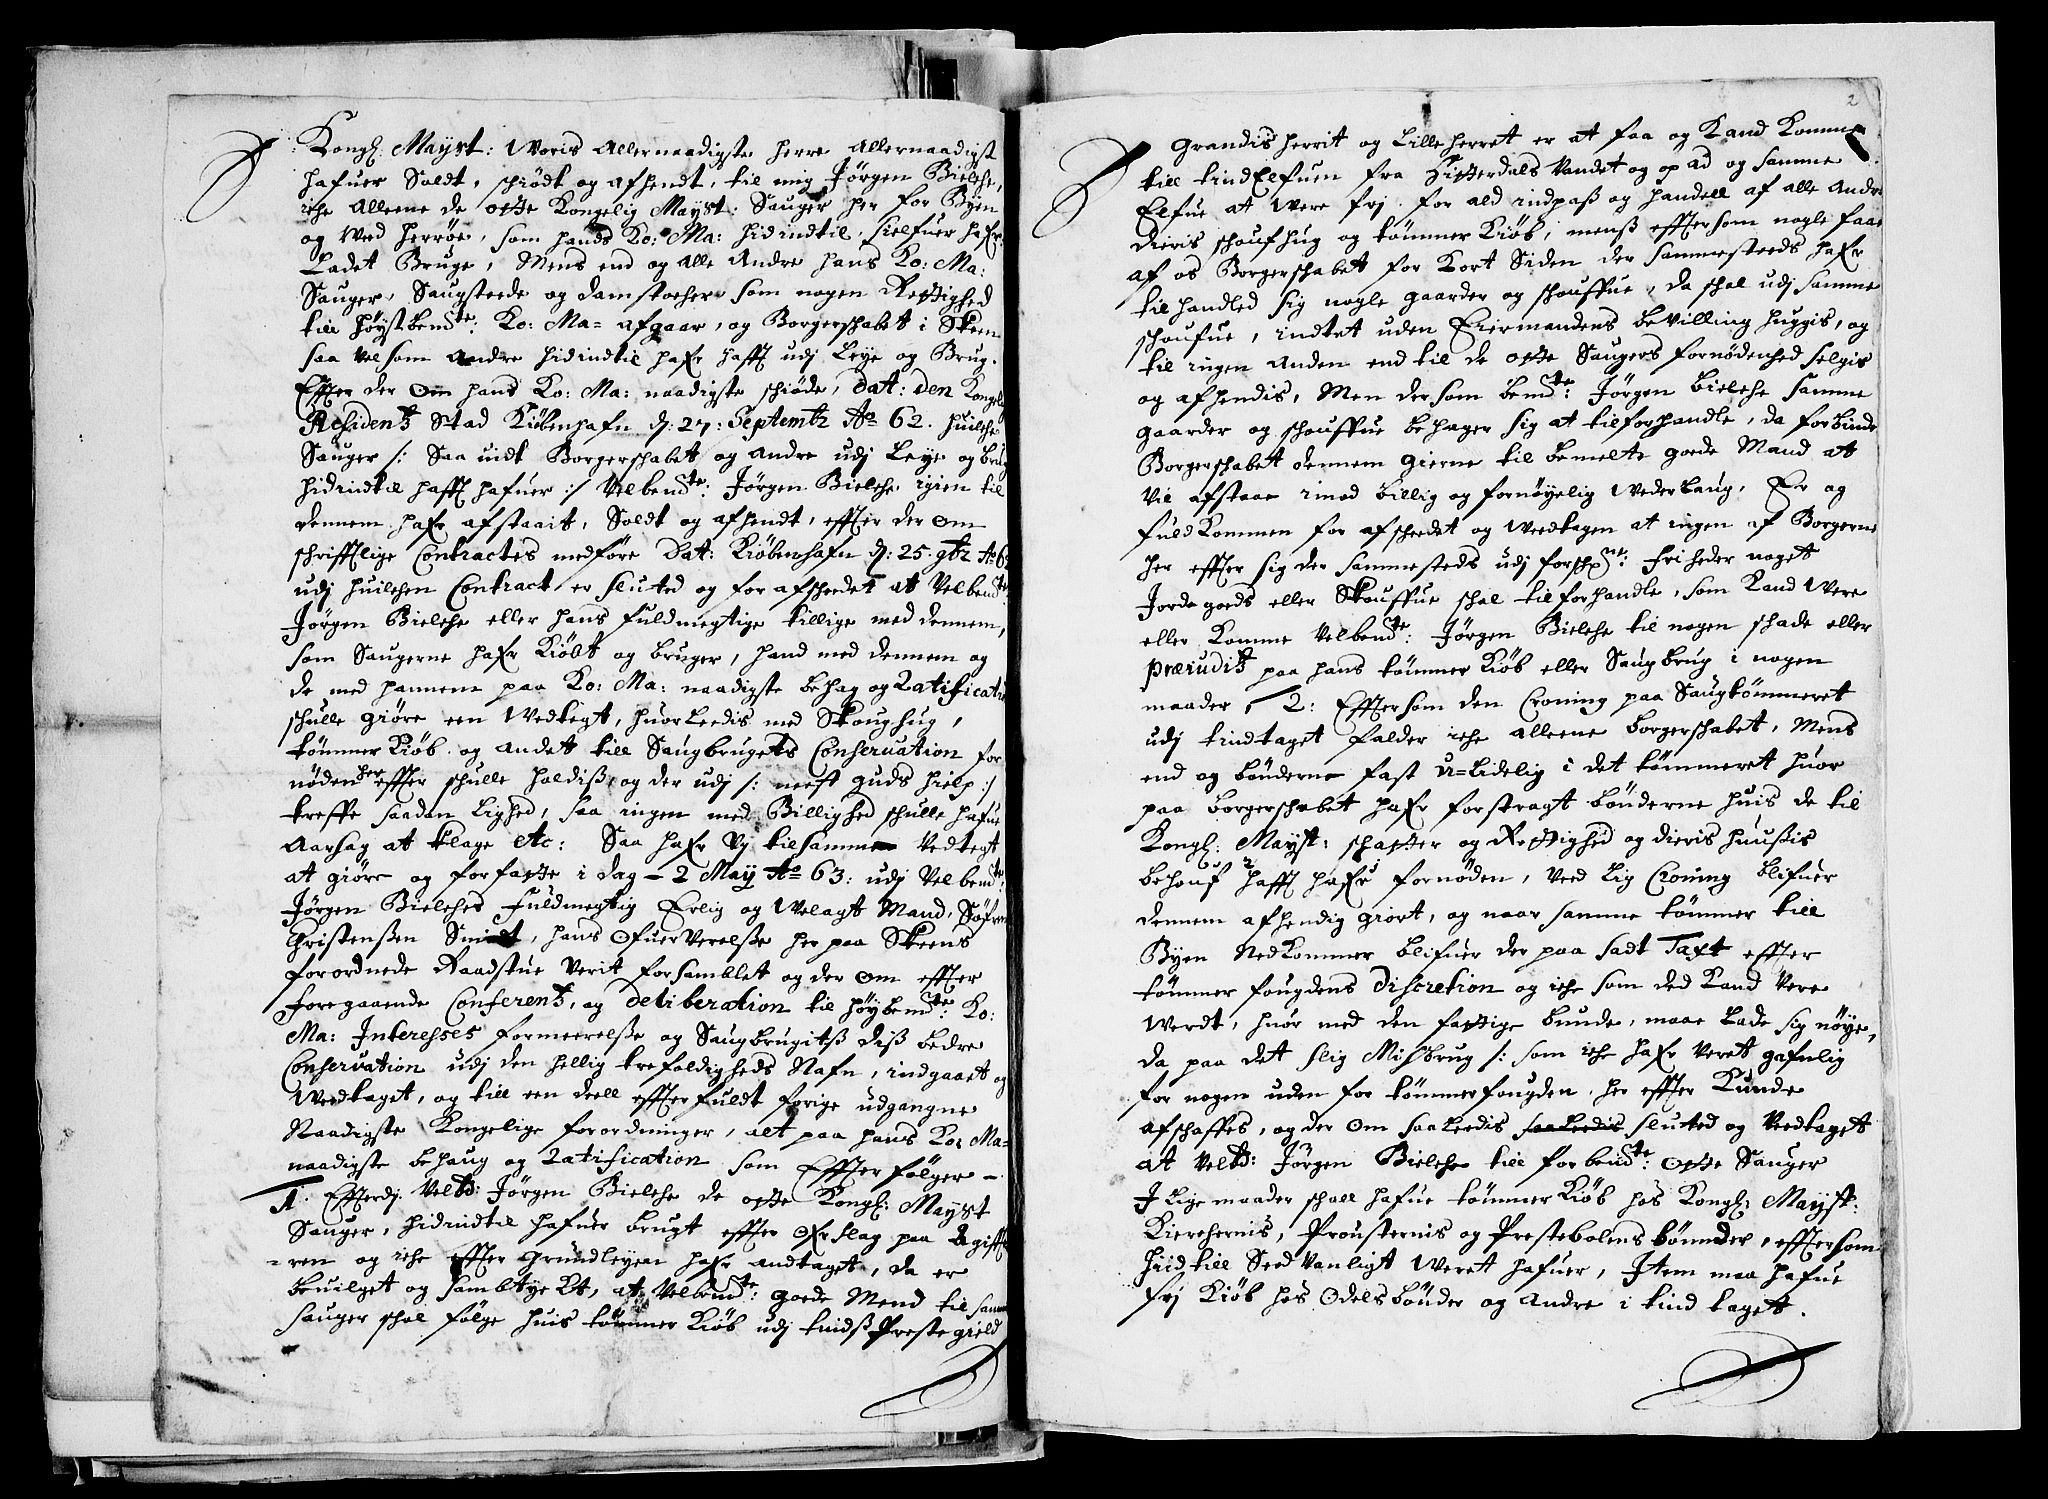 Kongl: Mayst: Woris Allernaadigste Herre Allernaadigst
hafuer Soldt, schiödt og afhendt, til mig Jörgen Bielche,
iche Alleene de otte Kongelig Mayst: Sauger her for Byen
og Wed Herröe, som hands Ko: Ma: hidindtil, sielfuer hafr
Ladet Bruge, Mens end og Alle Andre hans Ko: Ma:
Sauger, Saugsteede og damstocher som nogen Rettighed
till höystbemte: Ko: Ma= afgaar, og Borgerschabet i Skeen
saa vel som Andre hidindtil hafr hafft udj Leye og Brug.
Effter der Om hans Ko: Ma: naadigste schiöde, Dat: den Kongelig
Residentz Stad Kiöbenhafn d: 27: Septembr Ao 62. huilche
Sauger /: Saa uidt Borgerschabet og Andre udj Leye og brug
hidindtil hafft hafuer :/ Velbemte: Jörgen Bielche igien til
dennem hafr afstaait, Soldt og afhendt, effter der om
schrifftlige Contractis medföre Dat: Kiöbenhafn d: 25. 9br Ao 62
udj huilchen Contract er Sluted og for afscheedet at Velbemte:
Jörgen Bielche eller hans fuldmegtige tillige med dennem,
som Saugerne hafr Kiöbt og bruger, hand med dennem og
de med hannem paa Ko: Ma: naadigste behag og Ratification
schulle giöre een Wedtegt, huorLeedis med Skoughug,
tömmer Kiöb og andet till Saugbrugets Conservation for
nöden her effter schulle holdiss, og der udj /: nest Guds hielp :/
treffe saadan Lighed, saa ingen med Billighed schulle hafue
Aarsag at klage etc: Saa hafr Vj tilsammen Vedtegt
at giöre og forfatte i dag - 2 Maij Ao 63: udj Velbemte:
Jörgen Bielches Fuldmegtig Erlig og Welagt Mand, Söfren
Christenssen Smidt, hans Ofuerverelsse her paa Skeens
forordnede Raadstue Verit forsamblet og der om effter
foregaaende Conferentz, og deliberation til höybemte: Ko:
Ma: Interesses formeerelsse og Saugbrugitss diss bedre
Conservation udj den hellig trefoldigheds Nafn, indgaaet og
Wedtaget, og till een deell effterfuldt forige udgangne
Naadigste Kongelige forordninger, alt paa hans Ko: Ma=
naadigste behaug og Ratification som Effterfölger -
1. Efferdj. Velbd: Jörgen Bielche de otte Kongl: Mayst
Sauger, hidindtil hafuer brugt effter Ofrslag paa Ugifft
=ren og iche effter Grundleyen hafr andtaget, da er
beuilget og Samblyckt, at Velbemte: goede Mend til samme
Sauger schal fölge huis tömmer Kiöb udj tindss Prestegield
2
Grandisherrit og Lille herret er at faa og Kand Komme
till tindElfuen fra Hitterdals Vandet og op ad og samme
Elfue at Were frj for ald indpass og handell af alle Andre
dieris schoufhug og tömmer Kiöb, menss effterson nogle faae
af os Borgerschabet for Kort Siden der sammesteeds hafr
tilhandled sig nogle gaarder og schouffue, da schal udj samme
schoufue, indtet uden Eiermandens beVilling huggis, og
til ingen Anden end til de otte Saugers fornödenhed selgis
og afhendis, Men dersom bemte: Jörgen Bielche samme
gaarder og schouffue behager sig at tilforhandle, da forbinde
Borgerschabet dennem gierne til bemelte goede Mand at
vil afstaae imod billig og fornöyelig Wederlaug, Er og
fuldKommen for afscheedet og Weedtagen at ingen af Borgerne
her effter sig der sammesteds udj forschne: friheder noget
Jorde goeds eller Skouffue schal tilforhandle, som Kand Were
eller Komme Velbemte: Jörgen Bielche til nogen schade eller
præiuditz paa hans tömmer Kiöb eller Saugbrug i nogen
maader, 2: Efftersom den Croning paa Saugtömmeret
udj tindtaget falder iche alleene borgerschabet, Mens
end og bönderne fast U=Lidelig i det tömmeret huor
paa borgerschabet hafr forstragt bönderne huis de til
Kongl: Mayst: schatter og Rettighed og dieris huussis
behouf hafft hafr fornöden, Veed Lig Croning blifuer
dennem afhendig giort, og naar samme tömmer till
Byen NedKommer blifuer der paa sadt Taxt effter
tömmer fougdens Discretion og iche som ded Kand Vere
Werdt, huor med den fattige bunde, maae Lade sig nöye,
da paa det slig Misbrug /: som iche hafr Veret gafnlig
for nogen uden for tömmerfougden, her effter Kunde
afschaffes, og der om saaleedis saaleedis sluted og Veedtaget
at Velbd: Jörgen Bielche till forbemte: Otte Sauger
J Lige maader schall hafue tömmer Kiöb hos Kongl: Mayst:
Kierchernis, Prousternis og Prestebolens bönnder, efftersom
hiidtill Sedvanligt Weret hafuer, Jtem maa hafue
frj Kiöb hos Odelsbönder og Andre i tind taget.